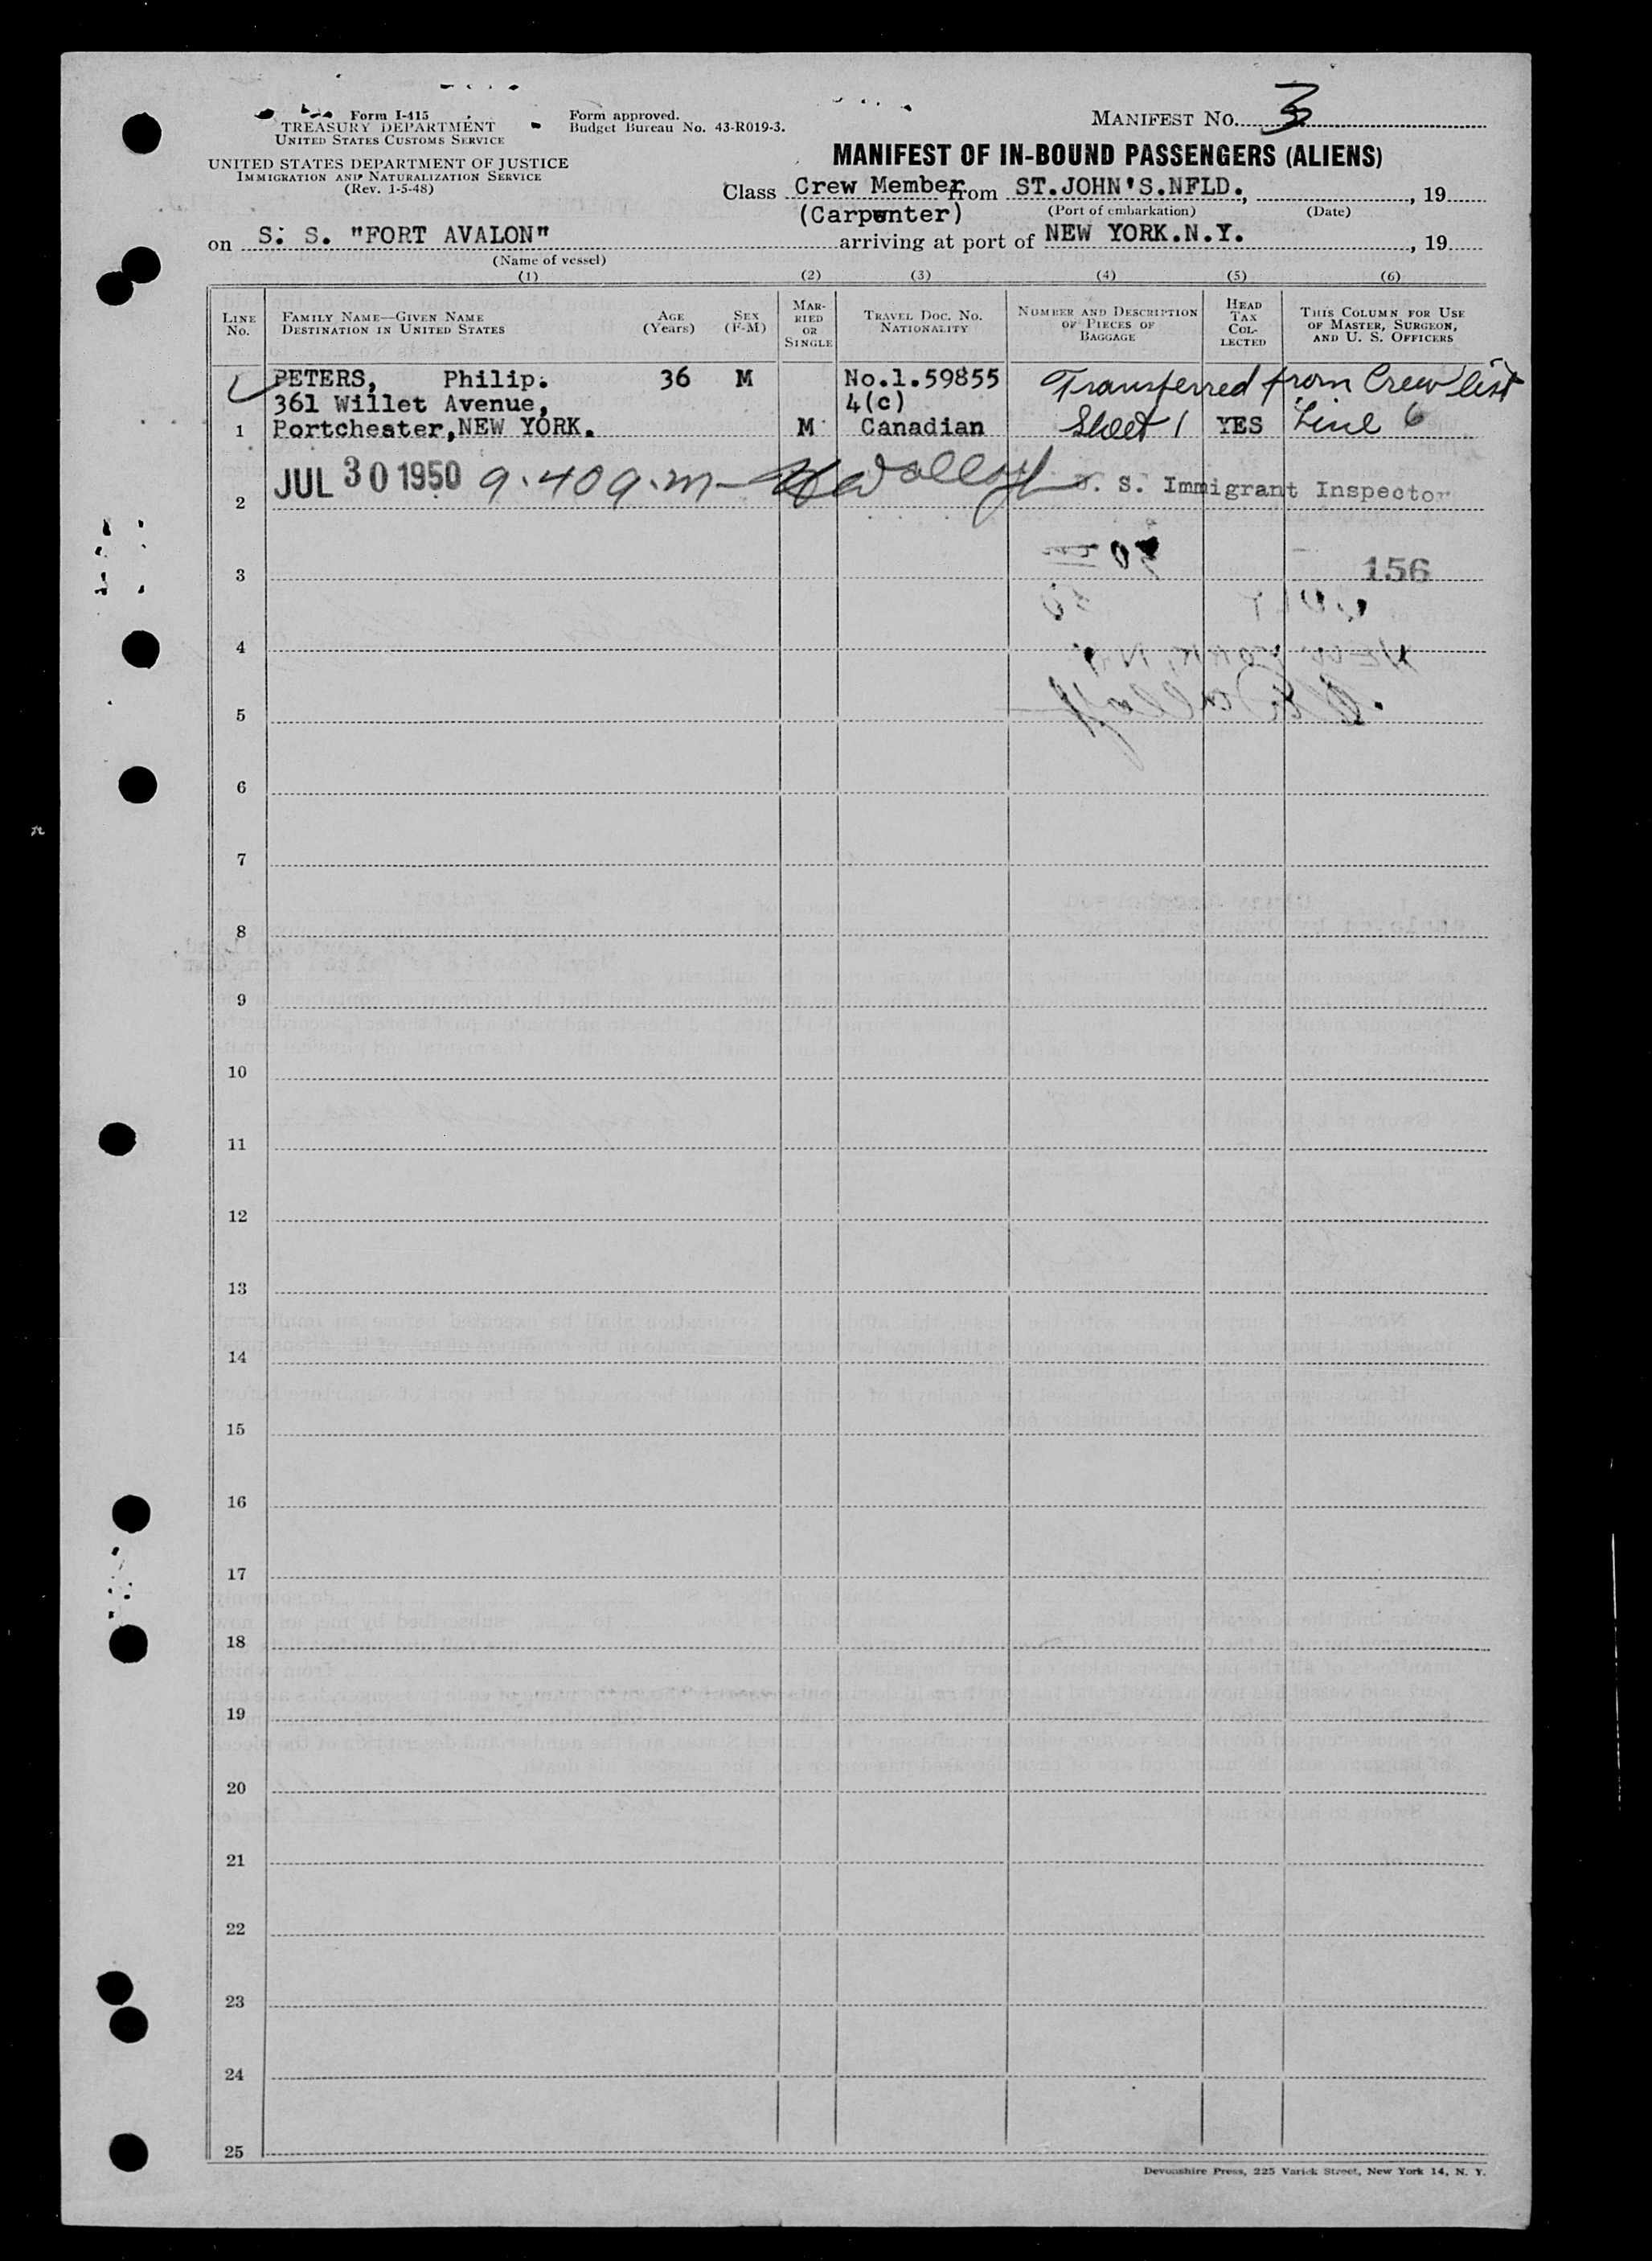 Form I-415
TREASURY DEPARTMENT
UNITED STATES CUSTOMS SERVICE
UNITED STATES DEPARTMENT OF JUSTICE
IMMIGRATION AND NATURALIZATION SERVICE
(Rev. 1-5-48)
Form approved.
Budget Bureau No. 43-R019-3.
MANIFEST NO. 3
MANIFEST OF IN-BOUND PASSENGERS (ALIENS)
Class Crew Member from ST.JOHN'S.NFLD., , 19
(Carpenter) (Port of embarkation) (Date)
on S. S. "FORT AVALON" arriving at port of NEW YORK.N.Y. , 19
(Name of vessel)
(1) (2) (3) (4) (5) (6)
LINE NO.
FAMILY NAME—GIVEN NAME
DESTINATION IN UNITED STATES
AGE
(Years)
SEX
(F-M)
MARRIED
OR
SINGLE
TRAVEL DOC. NO.
NATIONALITY
NUMBER AND DESCRIPTION
OF PIECES OF
BAGGAGE
HEAD
TAX
COLLECTED
THIS COLUMN FOR USE
OF MASTER, SURGEON,
AND U. S. OFFICERS
PETERS, Philip. 36 M No.1.59855 Transferred from Crew list
361 Willet Avenue, 4(c)
1 Portchester,NEW YORK. M Canadian Sheet 1 YES Line 6
JUL 30 1950 9.40 a.m. U. S. Immigrant Inspector
2
3 156
4
5
6
7
8
9
10
11
12
13
14
15
16
17
18
19
20
21
22
23
24
25
Devonshire Press, 225 Varick Street, New York 14, N. Y.